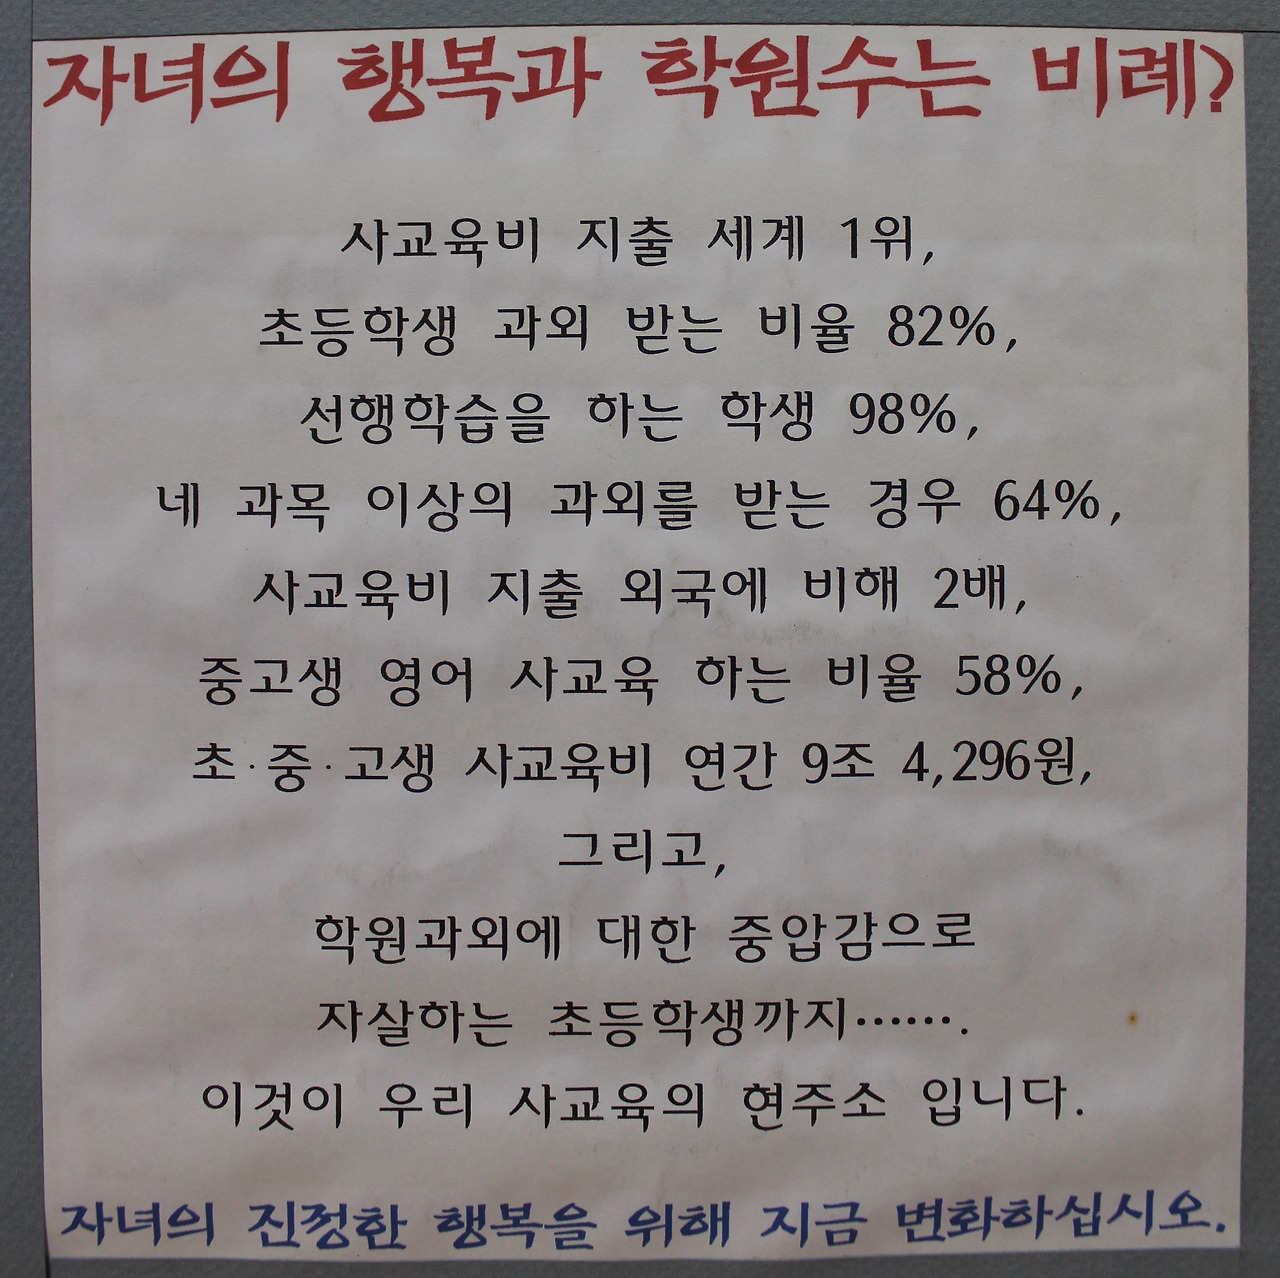 자녀의 행복과 학원수는 비례?
사교육비 지출 세계 1위,
초등학생 과외 받는 비율 82%,
선행학습을 하는 학생 98%,
네 과목 이상의 과외를 받는 경우 64%,
사교육비 지출 외국에 비해 2배,
중고생 영어 사교육 하는 비율 58%,
초·중·고생 사교육비 연간 9조 4,296원,
그리고,
학원과외에 대한 중압감으로
자살하는 초등학생까지…….
이것이 우리 사교육의 현주소 입니다.
자녀의 진정한 행복을 위해 지금 변화하십시오.